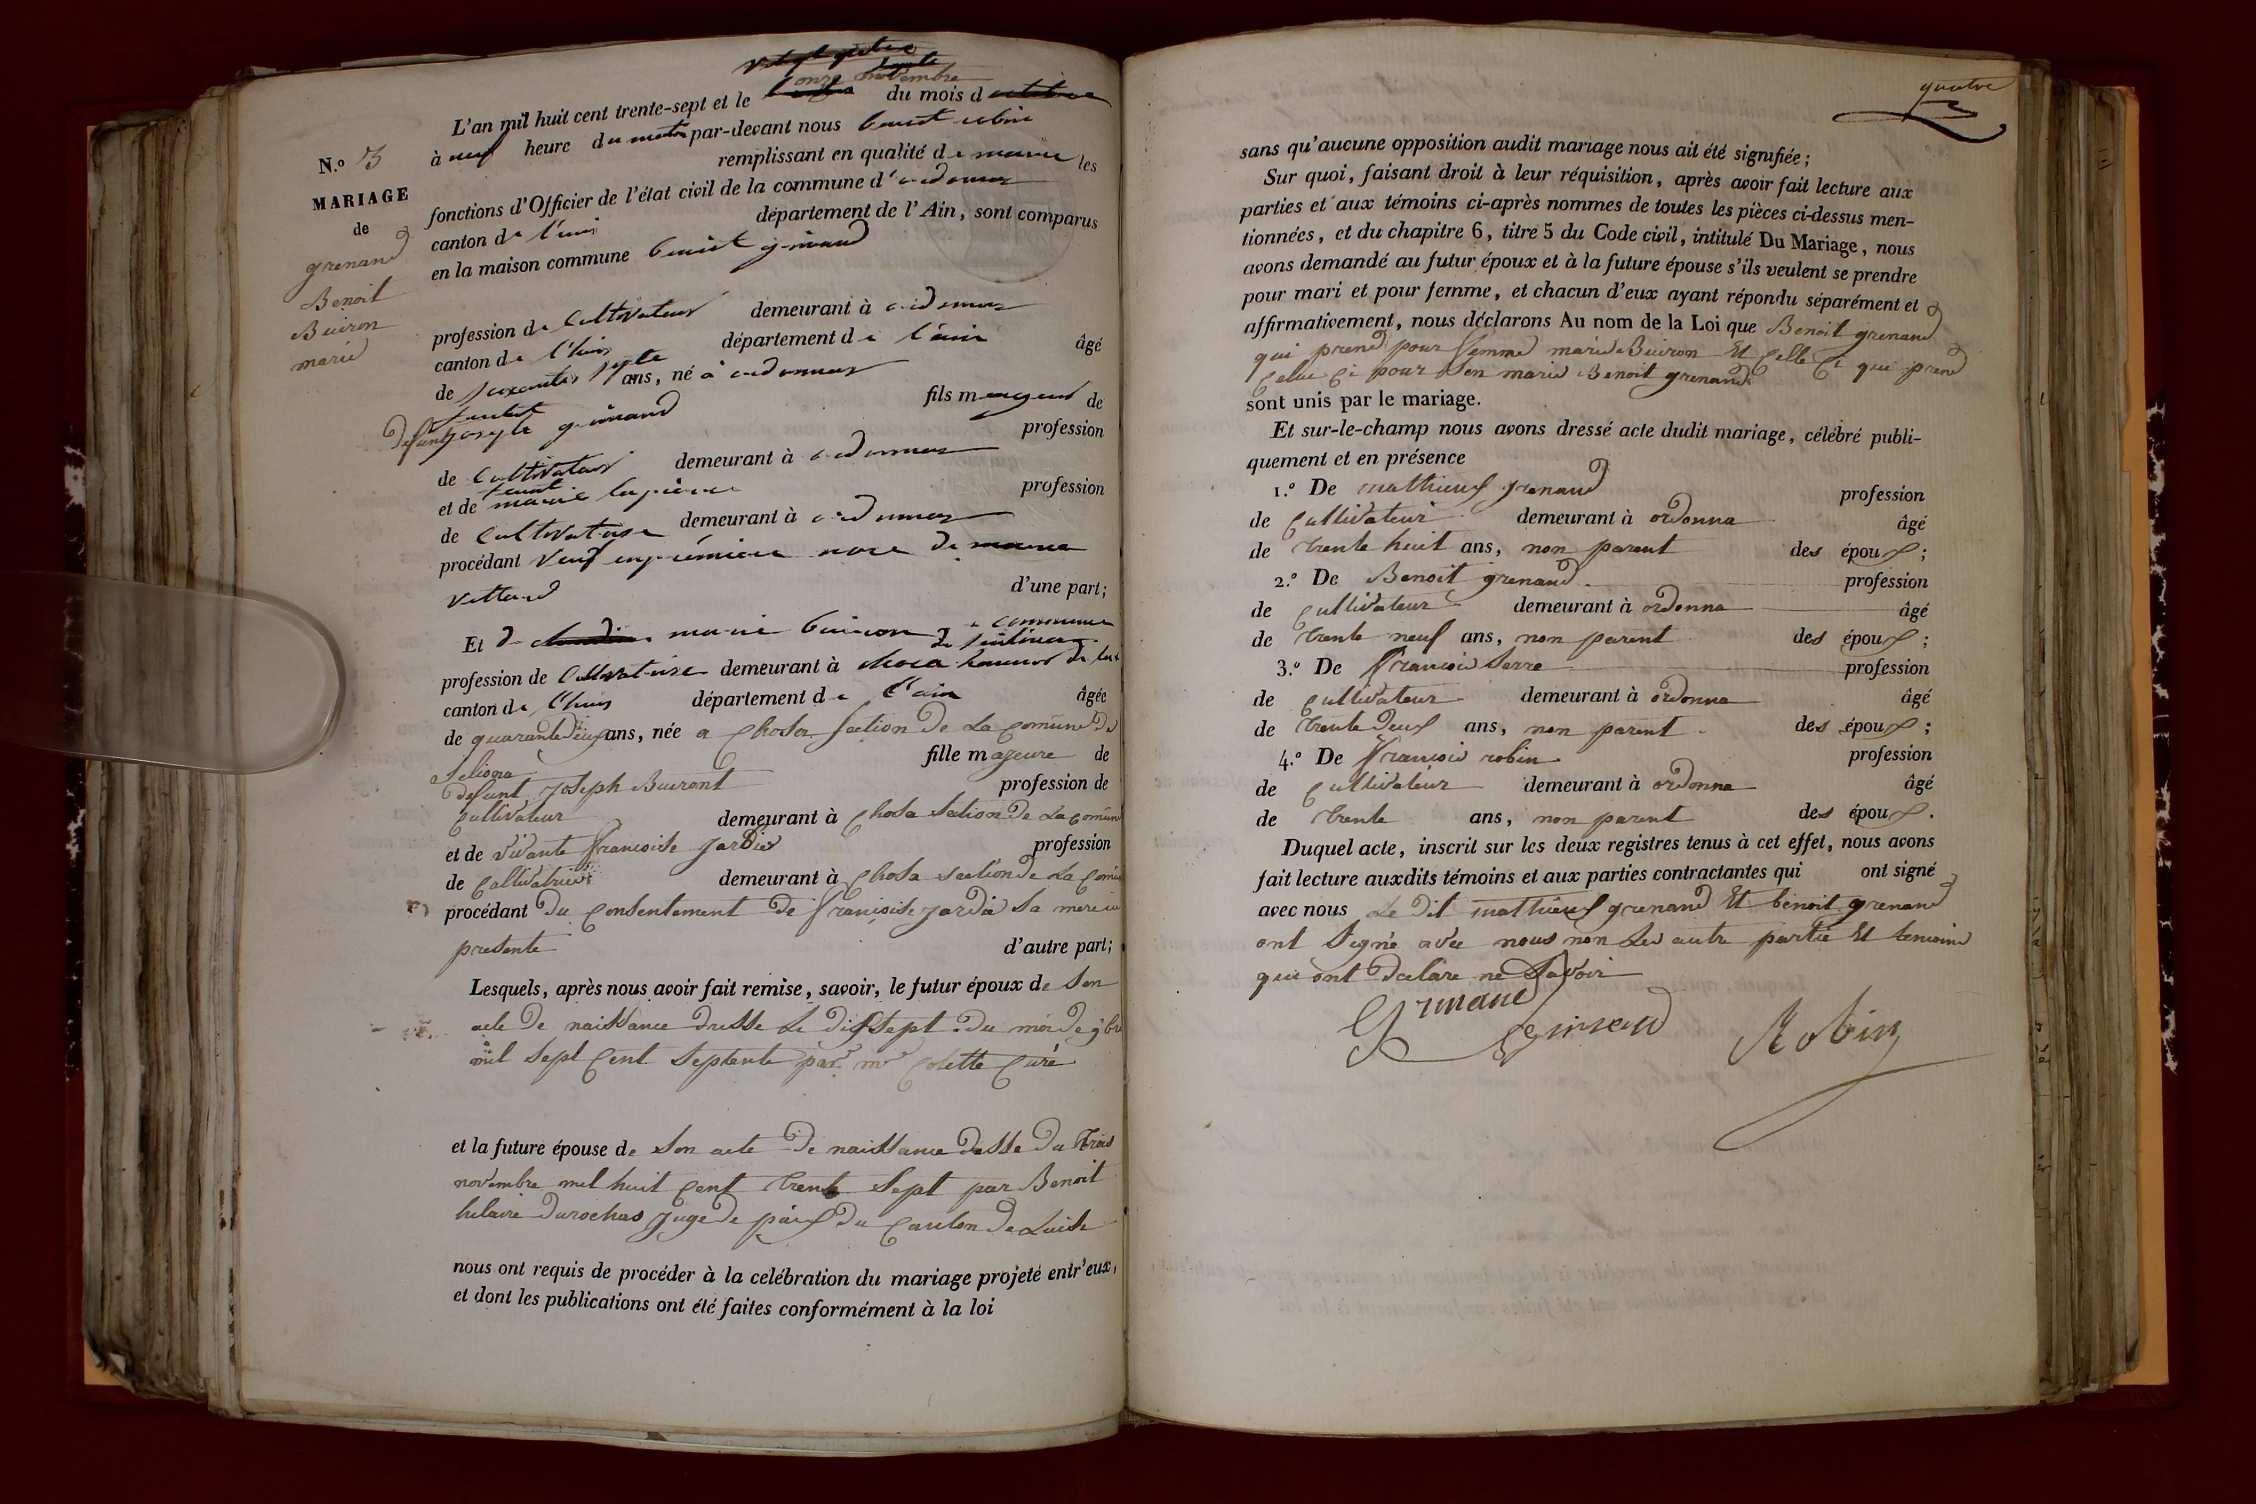 L'an mil huit cent trente-sept et le onze novembre du mois d
à neuf heure du matin par-devant nous benoit robin
N.o 3
remplissant en qualité de maire les
MARIAGE
de
grenand
Benoit
Buiron
marie
fonctions d'Officier de l'état civil de la commune d'ordonnas
canton de l'huis département de l'Ain, sont comparus
en la maison commune benoit grinand
profession de Cultivateur demeurant à ordonnas
canton de l'huis département de l'ain âgé
de soixantes septe ans, né à ordonnas
fils majeur de
Defunt joseph grinand profession
de Cultivateur demeurant à ordonnas
et de marie profession
de Cultivatrise demeurant à ordonnas
procédant veuf en première nore de
d'une part;
Et d marie buiron
profession de Cultivatrise demeurant à
canton de l'huis département de l'ain âgée
de quarante deux ans, née a Chosa section De La Comune De
Seliona fille majeure de
defunt Joseph Buiront profession de
Cultivateur demeurant à Chosa Section De La Comune
et de vivante francoise jardie profession
de Cultivatrice demeurant à Chosa section De La Comune
procédant Du Consentement De françoise jardie sa mere ici
presente d'autre part;
Lesquels, après nous avoir fait remise, savoir, le futur époux de Son
acte De naissance Dresse Le Dix sept Du mois de 9bre
mil Sept Cent Septante par mr Colette Curé
et la future épouse de Son acte De naissance Du Trois
novembre mil huit Cent Trente Sept par Benoit
hilaire Durochas Juge De paix Du Canton De Luis
nous ont requis de procéder à la celébration du mariage projeté entr'eux,
et dont les publications ont été faites conformément à la loi
quatre
sans qu'aucune opposition audit mariage nous ait été signifiée;
Sur quoi, faisant droit à leur réquisition, après avoir fait lecture aux
parties et aux témoins ci-après nommes de toutes les pièces ci-dessus men-
tionnées, et du chapitre 6, titre 5 du Code civil, intitulé Du Mariage, nous
avons demandé au futur époux et à la future épouse s'ils veulent se prendre
pour mari et pour femme, et chacun d'eux ayant répondu séparément et
affirmativement, nous déclarons Au nom de la Loi que Benoit grenand
qui prend pour femme marie Buiron Et Celle Ci qui prend
Celui Ci pour Son marie Benoit grenand
sont unis par le mariage.
Et sur-le-champ nous avons dressé acte dudit mariage, célébré publi-
quement et en présence
1.o De mathieux grenand profession
de Cultivateur demeurant à ordonna âgé
de trente huit ans, non parent des époux;
2.o De Benoit grenand profession
de Cultivateur demeurant à ordonna âgé
de trente neuf ans, non parent des époux;
3.o De françois Serre profession
de Cultivateur demeurant à ordonna âgé
de trente Deux ans, non parent des époux;
4.o De françois robin profession
de Cultivateur demeurant à ordonna âgé
de trente ans, non parent des époux.
Duquel acte, inscrit sur les deux registres tenus à cet effet, nous avons
fait lecture auxdits témoins et aux parties contractantes qui ont signé
avec nous Le Dit mathieux grenand Et benoit grenand
ont Signé avec nous non Les autre partie Et temoins
qui ont Declare ne Savoir
Grenand Grinand Robin